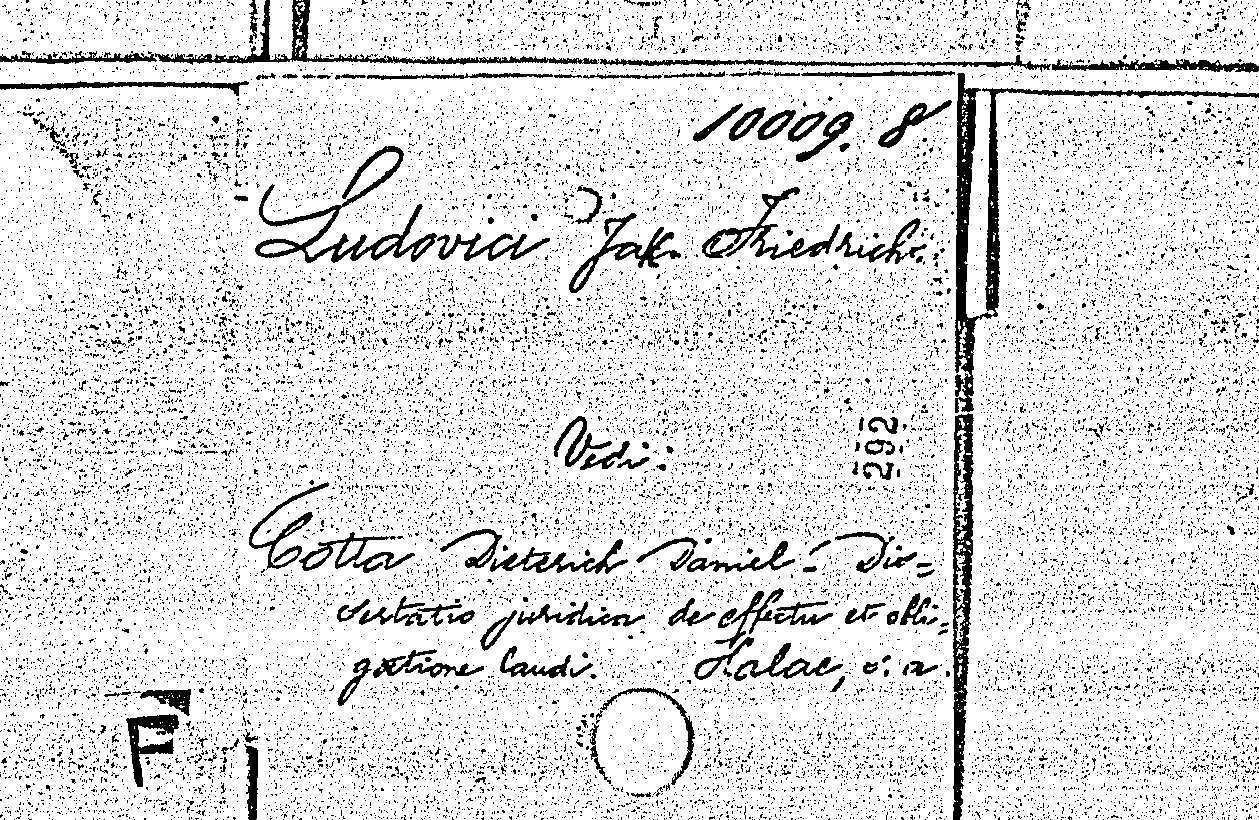 10009. 8
Ludovici Jak. Friedrich.
292
Vedi:
Cotta Dieterich Daniel - Dis=
sertatio juridica de effectu et obli=
gatione laudi. Halae, s. a.
F